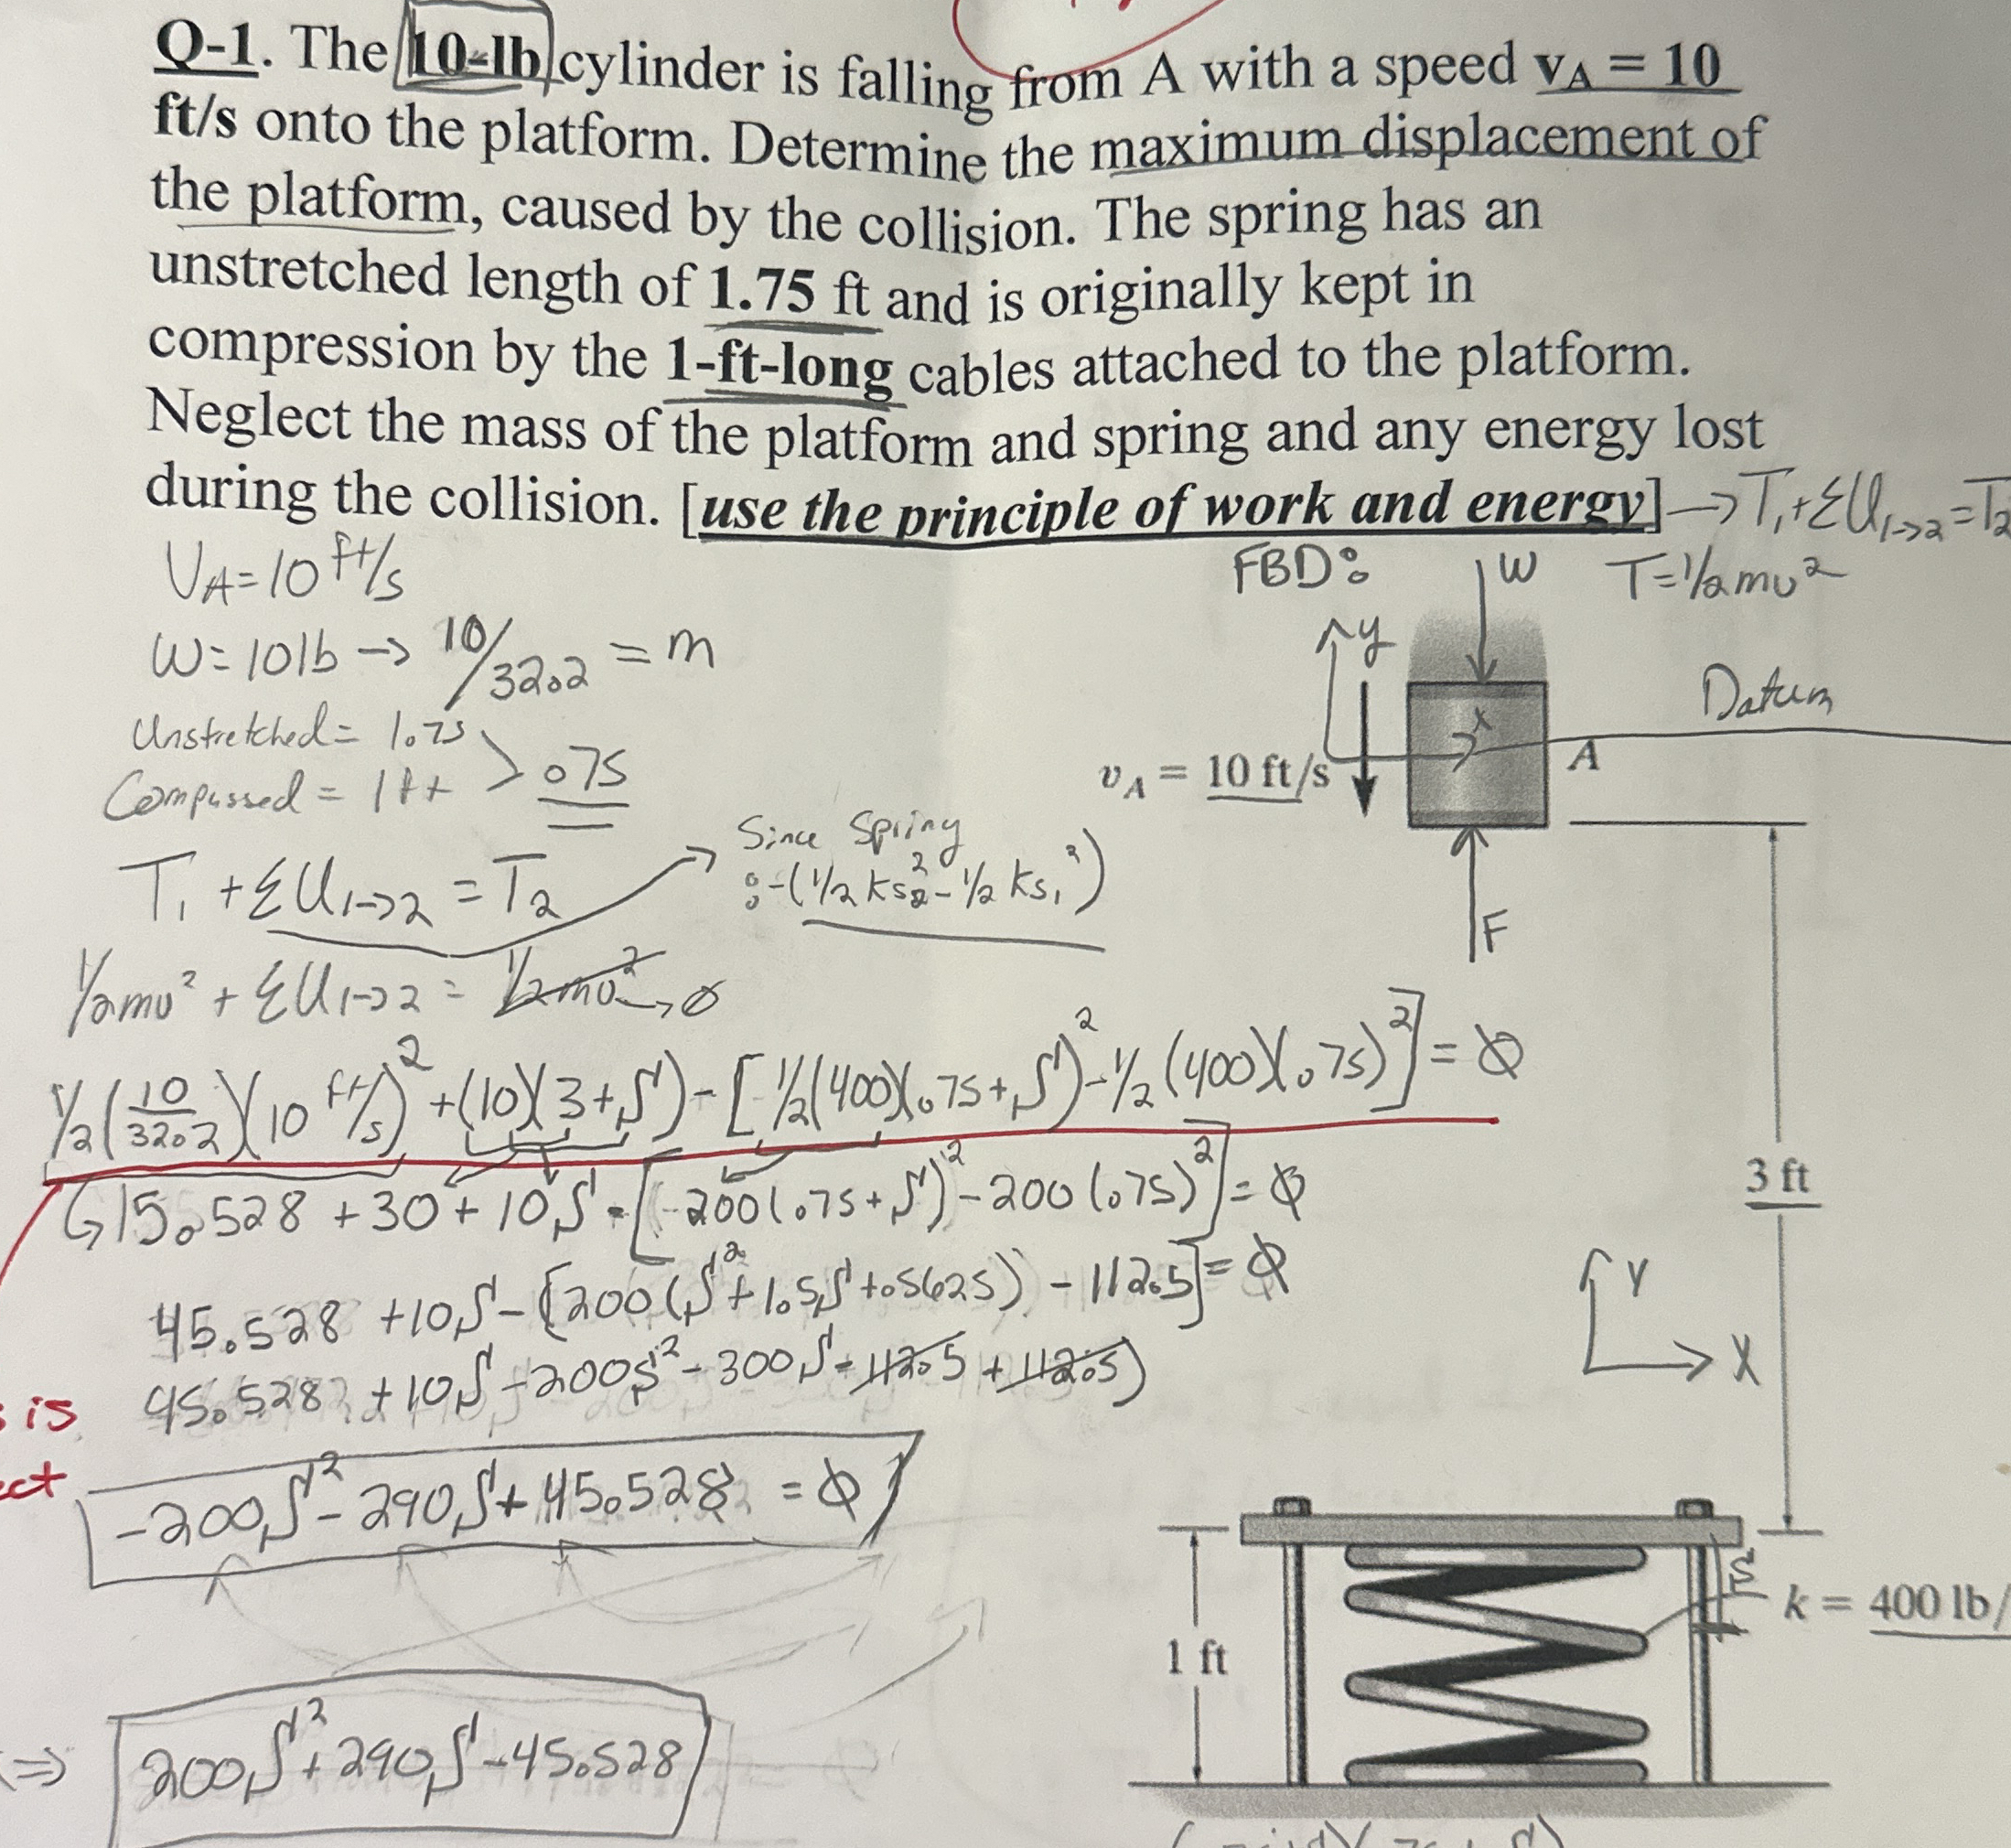 Q-1. The 10-lb cylinder is falling from A with a speed vA = 10
ft/s onto the platform. Determine the maximum displacement of
the platform, caused by the collision. The spring has an
unstretched length of 1.75 ft and is originally kept in
compression by the 1-ft-long cables attached to the platform.
Neglect the mass of the platform and spring and any energy lost
during the collision. [use the principle of work and energy] → T₁+ΣU₁→₂=T₂
VA=10 ft/s
FBD:
W
T=1/2mv²
W=10lb → 10/32.2 = m
y
Datum
Unstretched = 1.75
Compressed = 1ft
> .75
x
vA = 10 ft/s
A
T₁ + ΣU₁→₂ = T₂
Since Spring
: -(1/2 ks₂² - 1/2 ks₁²)
F
1/2mv² + ΣU₁→₂ = 1/2mv² → Ø
1/2(10/32.2)(10 ft/s)² + (10)(3+S) - [1/2(400)(.75+S)² - 1/2(400)(.75)²] = Ø
↳ 15.528 + 30 + 10S - [200(.75+S)² - 200(.75)²] = Ø
3 ft
45.528 + 10S - [200(S² + 1.5S + .5625) - 112.5] = Ø
Y
X
45.528 + 10S - 200S² - 300S - 112.5 + 112.5)
is
ct
-200S² - 290S + 45.528 = Ø
S
k = 400 lb/
1 ft
⇒ 200S² + 290S - 45.528